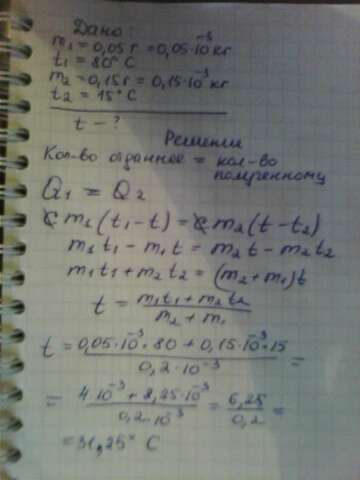 Дано:
m₁ = 0,05 г = 0,05·10⁻³ кг
t₁ = 80° С
m₂ = 0,15 г = 0,15·10⁻³ кг
t₂ = 15° С
t - ?
Решение
Кол-во отданное = кол-во
полученному
Q₁ = Q₂
c m₁ (t₁ - t) = c m₂ (t - t₂)
m₁ t₁ - m₁ t = m₂ t - m₂ t₂
m₁ t₁ + m₂ t₂ = (m₂ + m₁) t
t = (m₁ t₁ + m₂ t₂) / (m₂ + m₁)
t = (0,05·10⁻³·80 + 0,15·10⁻³·15) / (0,2·10⁻³) =
= (4·10⁻³ + 2,25·10⁻³) / (0,2·10⁻³) = 6,25 / 0,2 =
= 31,25° С